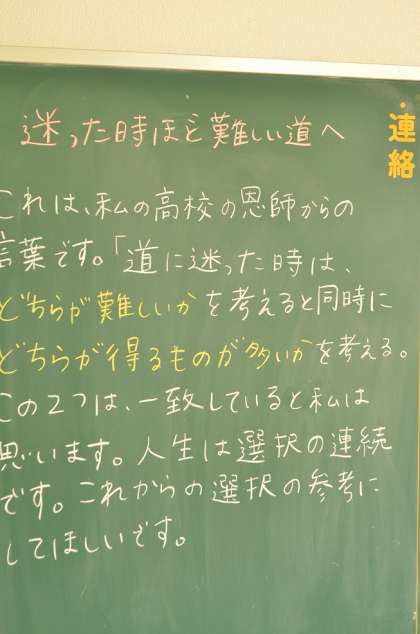 迷った時ほど難しい道へ
連絡
これは、私の高校の恩師からの
言葉です。「道に迷った時は、
どちらが難しいかを考えると同時に
どちらが得るものが多いかを考える。
この2つは、一致していると私は
思います。人生は選択の連続
です。これからの選択の参考に
してほしいです。